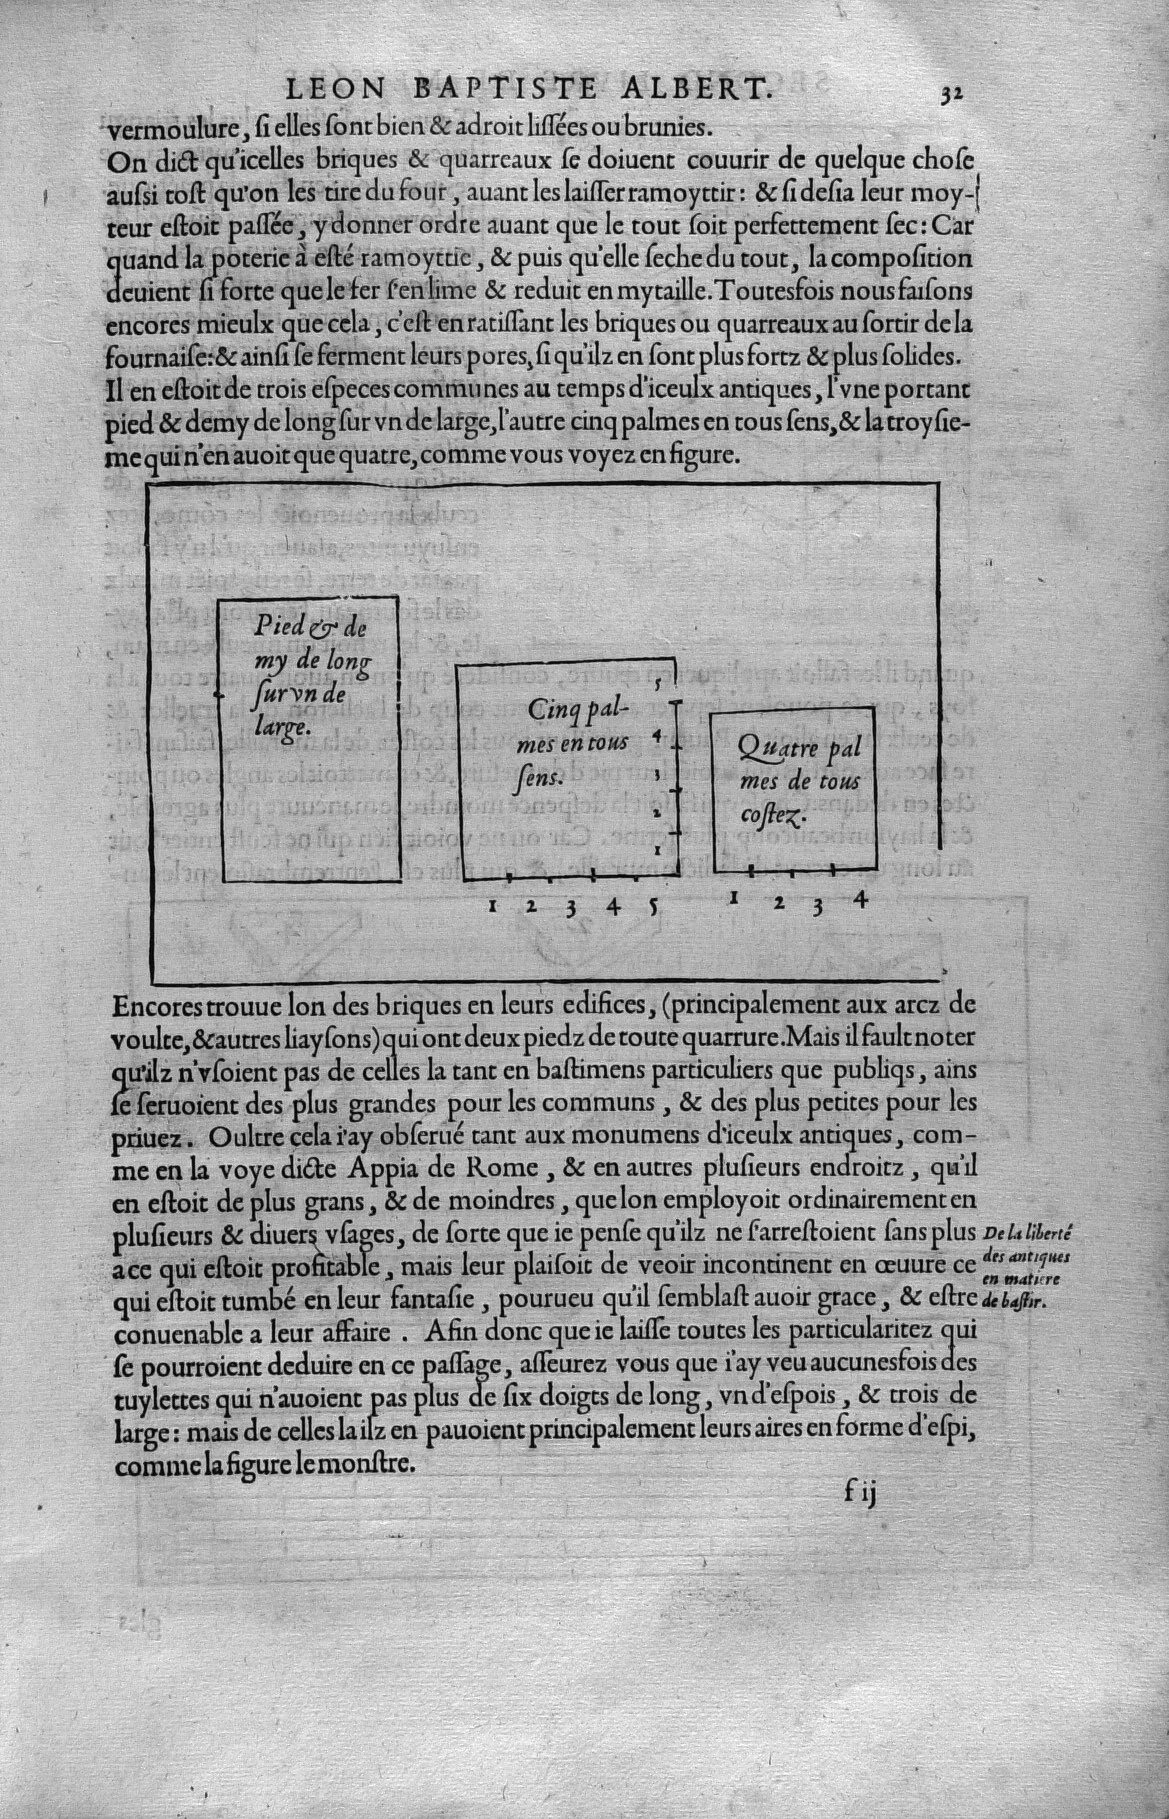 LEON BAPTISTE ALBERT. 32
vermoulure, ſi elles ſont bien & adroit liſſées ou brunies.
On dict qu'icelles briques & quarreaux ſe doiuent couurir de quelque choſe
auſsi toſt qu'on les tire du four, auant les laiſſer ramoyttir: & ſi deſia leur moy-
teur eſtoit paſſée, y donner ordre auant que le tout ſoit perfettement ſec: Car
quand la poterie à eſté ramoyttie, & puis qu'elle ſeche du tout, la compoſition
deuient ſi forte que le fer ſ'en lime & reduit en mytaille. Toutesfois nous faiſons
encores mieulx que cela, c'eſt en ratiſſant les briques ou quarreaux au ſortir de la
fournaiſe: & ainſi ſe ferment leurs pores, ſi qu'ilz en ſont plus fortz & plus ſolides.
Il en eſtoit de trois eſpeces communes au temps d'iceulx antiques, l'vne portant
pied & demy de long ſur vn de large, l'autre cinq palmes en tous ſens, & la troyſie-
me qui n'en auoit que quatre, comme vous voyez en figure.
Pied & de
my de long
ſur vn de
large.
Cinq pal-
mes en tous
ſens.
5
4
3
2
1
1 2 3 4 5
Quatre pal
mes de tous
coſtez.
1 2 3 4
Encores trouue lon des briques en leurs edifices, (principalement aux arcz de
voulte, & autres liayſons) qui ont deux piedz de toute quarrure. Mais il fault noter
qu'ilz n'vſoient pas de celles la tant en baſtimens particuliers que publiqs, ains
ſe ſeruoient des plus grandes pour les communs, & des plus petites pour les
priuez. Oultre cela i'ay obſerué tant aux monumens d'iceulx antiques, com-
me en la voye dicte Appia de Rome, & en autres pluſieurs endroitz, qu'il
en eſtoit de plus grans, & de moindres, que lon employoit ordinairement en
pluſieurs & diuers vſages, de ſorte que ie penſe qu'ilz ne ſ'arreſtoient ſans plus
a ce qui eſtoit profitable, mais leur plaiſoit de veoir incontinent en œuure ce
qui eſtoit tumbé en leur fantaſie, pourueu qu'il ſemblaſt auoir grace, & eſtre
conuenable a leur affaire. Afin donc que ie laiſſe toutes les particularitez qui
ſe pourroient deduire en ce paſſage, aſſeurez vous que i'ay veu aucunesfois des
tuylettes qui n'auoient pas plus de ſix doigts de long, vn d'eſpois, & trois de
large: mais de celles la ilz en pauoient principalement leurs aires en forme d'eſpi,
comme la figure le monſtre.
De la liberté
des antiques
en matiere
de baſtir.
f ij